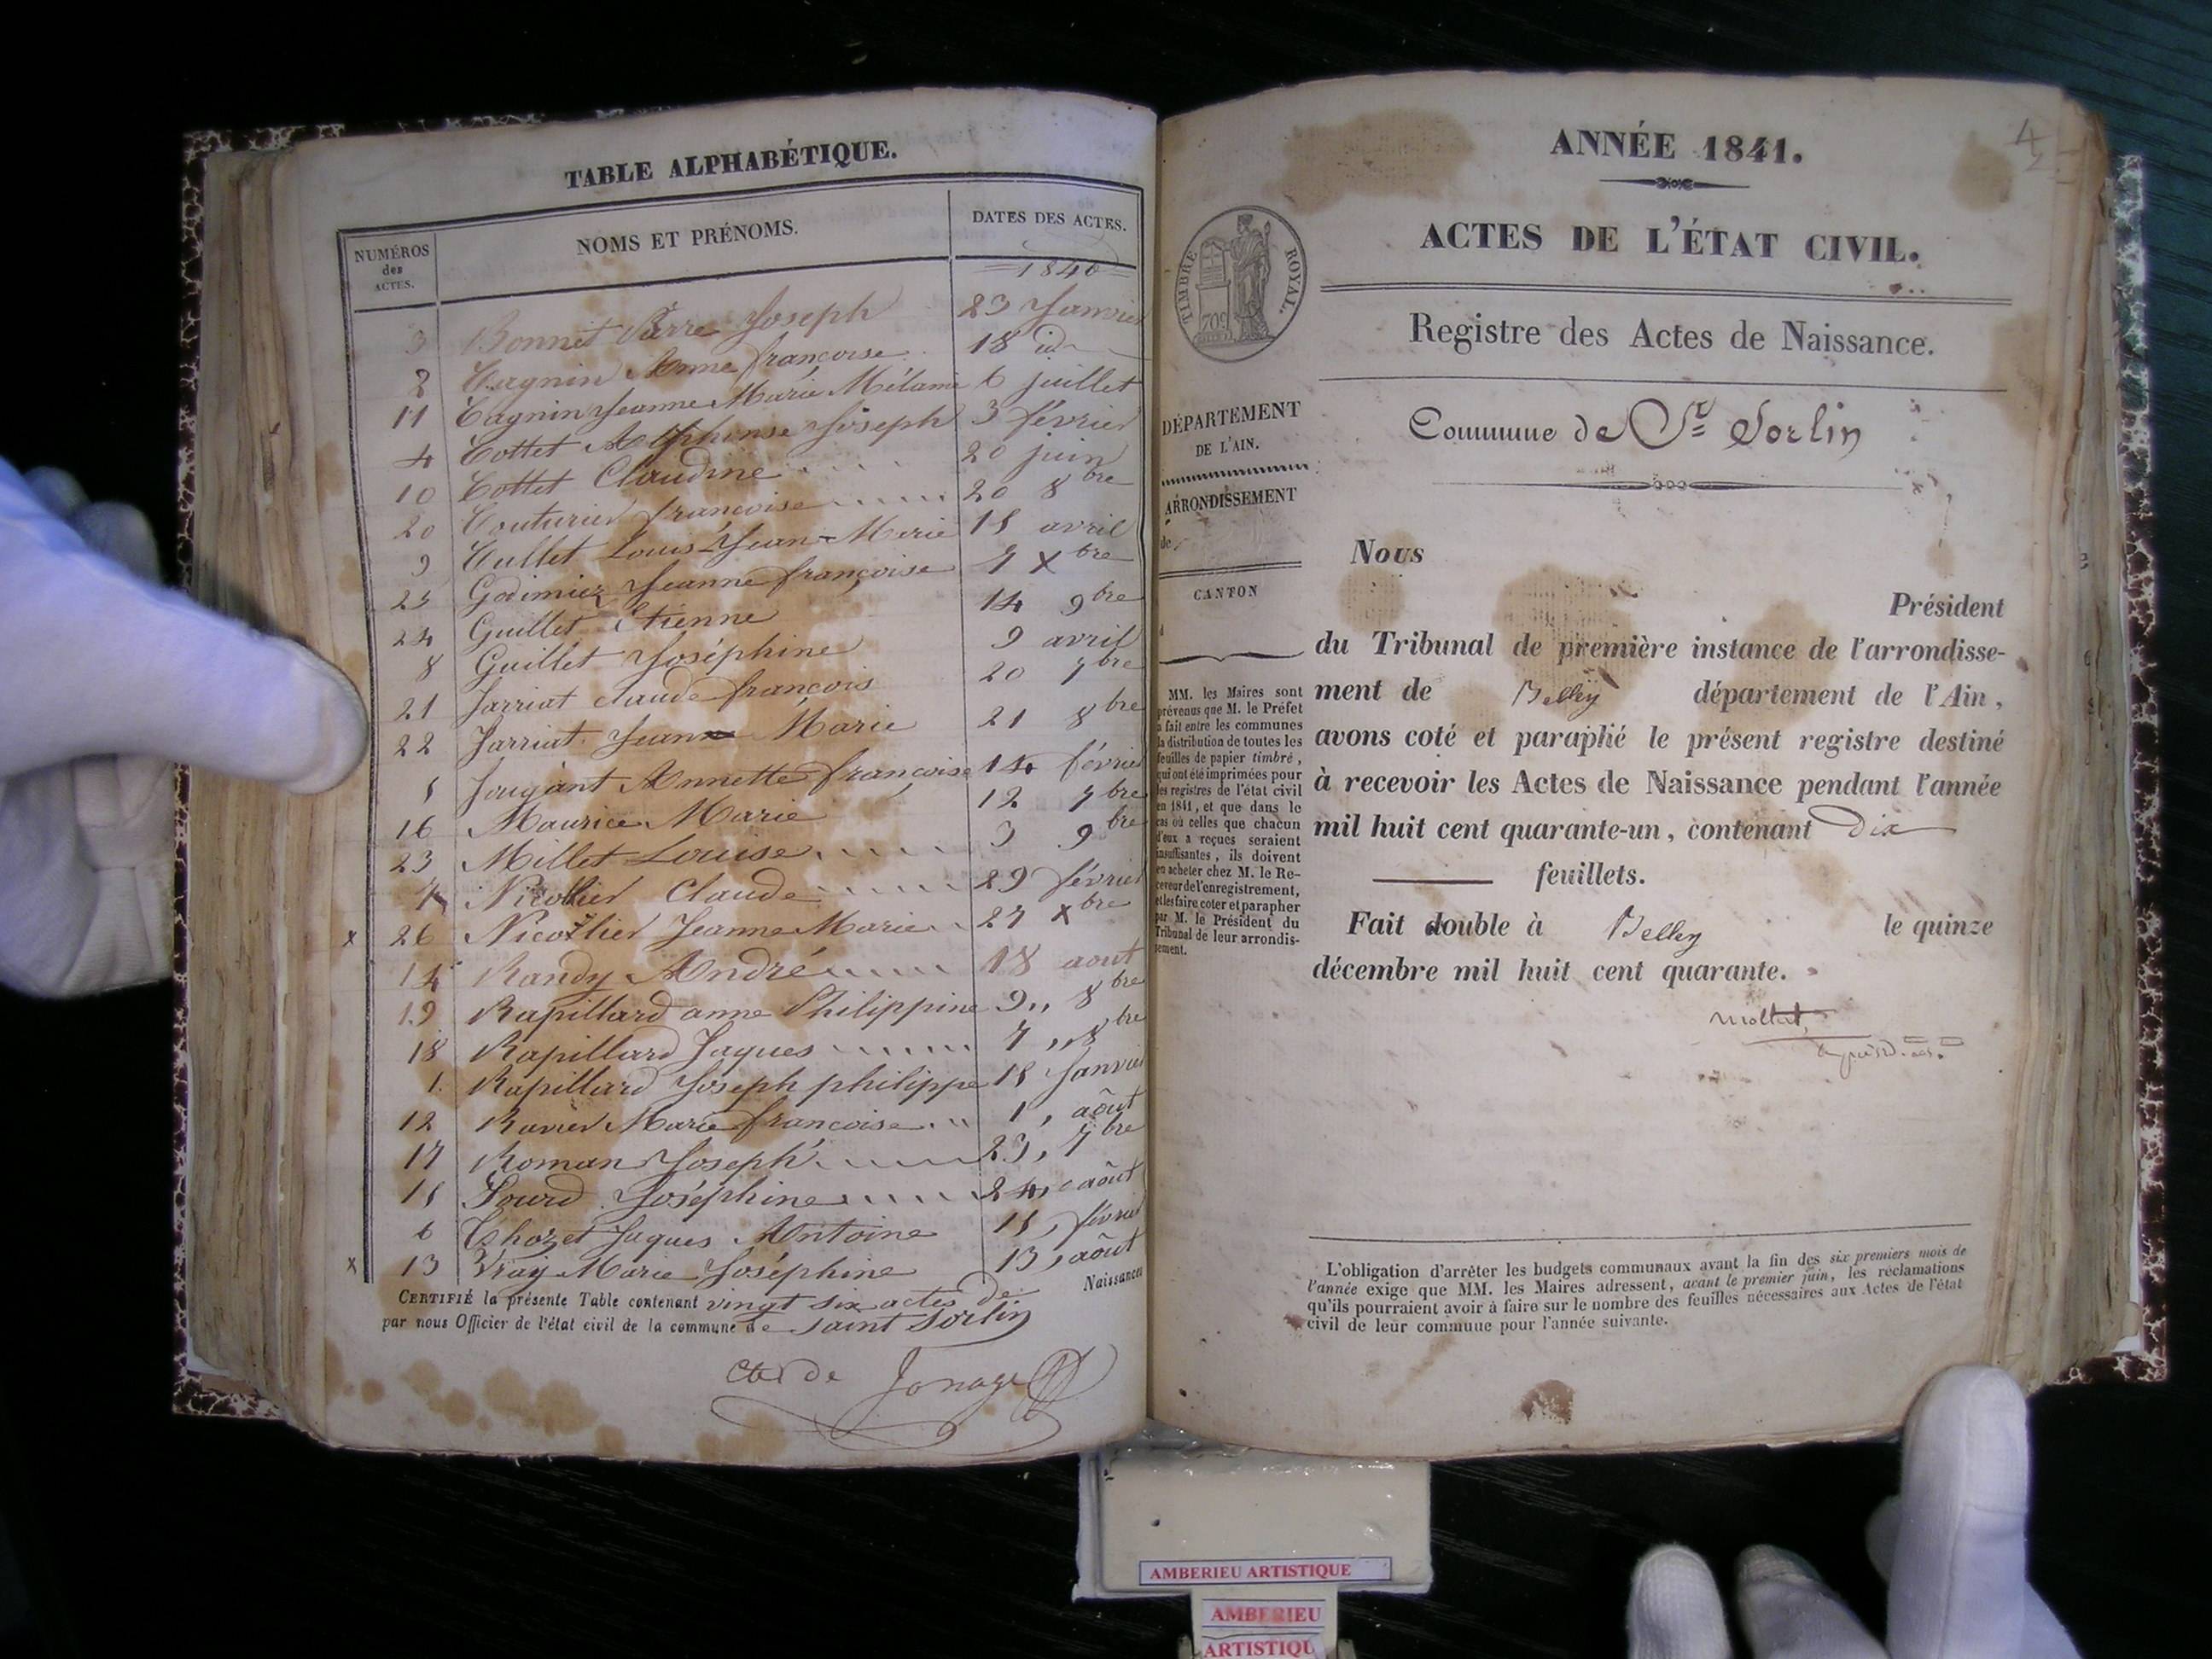 TABLE ALPHABÉTIQUE.
NUMÉROS des ACTES. NOMS ET PRÉNOMS. DATES DES ACTES.
1840
3 Bonnet Pierre Joseph 23 Janvier
2 Cagnin Anne françoise 18 id
11 Cagnin Jeanne Marie Mélanie 6 juillet
4 Cottet Alphonse Joseph 3 février
10 Cottet Claudine 20 juin
20 Couturier francoise 20 8bre
9 Cullet Louis Jean-Marie 15 avril
25 Godimier Jeanne françoise 7 Xbre
24 Guillet Etienne 14 9bre
8 Guillet Joséphine 9 avril
21 Jarriat claude françois 20 7bre
22 Jarriat Jean Marie 21 8bre
5 Annette françoise 14 février
16 Maurice Marie 12 7bre
23 Millet Louise 3 9bre
7 Nicollier Claude 29 février
x 26 Nicollier Jeanne Marie 27 xbre
14 Randy André 18 aout
19 Rapillard anne Philippine 9,, 8bre
18 Rapillard Jaques 7 ,,8bre
1. Rapillard Joseph philippe 15 Janvier
12 Ravier Marie francoise 1, aôut
17 Roman Joseph 23, 7bre
15 Sourd Joséphine 24, aôut
6 Thozet Jaques Antoine 15, février
x 13 Vray Marie Joséphine 13, aôut
CERTIFIÉ la présente Table contenant vingt six actes de Naissances
par nous Officier de l'état civil de la commune de Saint Sorlin
Cte de Jonage
4
ANNÉE 1841.
ACTES DE L'ÉTAT CIVIL.
TIMBRE ROYAL.
Registre des Actes de Naissance.
Commune de St Sorlin
DÉPARTEMENT
DE L'AIN.
ARRONDISSEMENT
de
CANTON
d
MM. les Maires sont
prévenus que M. le Préfet
a fait entre les communes
la distribution de toutes les
feuilles de papier timbré,
qui ont été imprimées pour
les registres de l'état civil
en 1841, et que dans le
cas où celles que chacun
d'eux a reçues seraient
insuffisantes, ils doivent
en acheter chez M. le Re-
ceveur de l'enregistrement,
et les faire coter et parapher
par M. le Président du
Tribunal de leur arrondis-
sement.
Nous
Président
du Tribunal de première instance de l'arrondisse-
ment de Belley département de l'Ain,
avons coté et paraphé le présent registre destiné
à recevoir les Actes de Naissance pendant l'année
mil huit cent quarante-un, contenant Dix
feuillets.
Fait double à Belley le quinze
décembre mil huit cent quarante.
L'obligation d'arrêter les budgets communaux avant la fin des six premiers mois de
l'année exige que MM. les Maires adressent, avant le premier juin, les réclamations
qu'ils pourraient avoir à faire sur le nombre des feuilles nécessaires aux Actes de l'état
civil de leur commune pour l'année suivante.
AMBERIEU ARTISTIQUE
AMBERIEU
ARTISTIQU